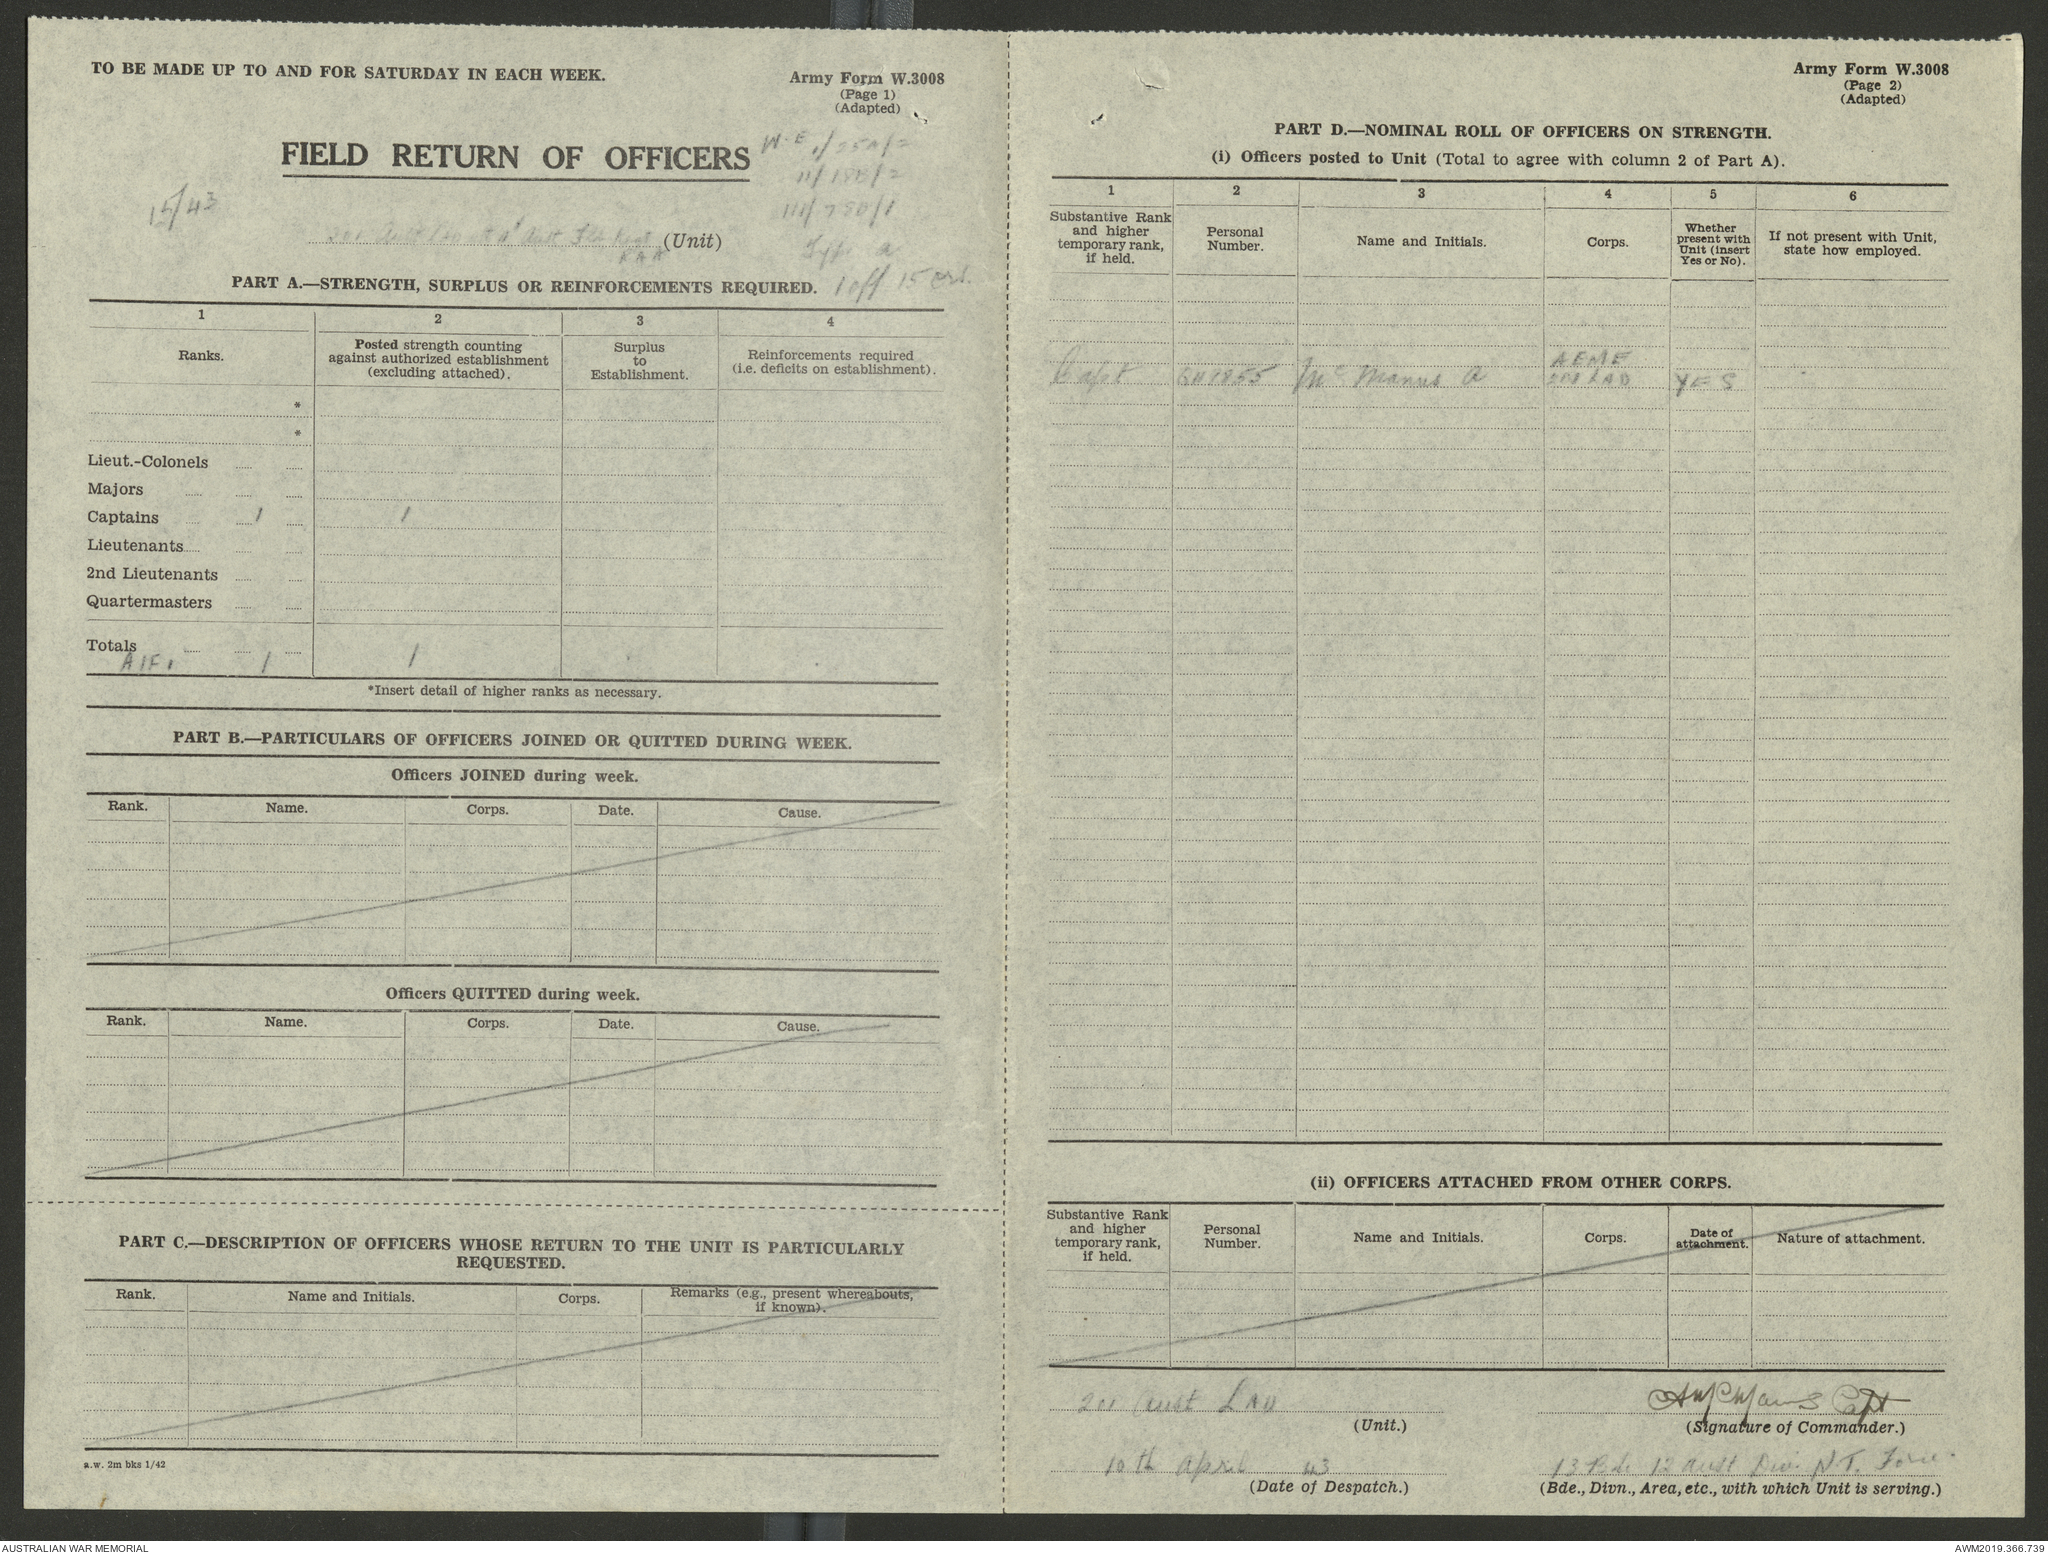 TO BE MADE UP TO AND FOR SATURDAY IN EACH WEEK.
Army Form W.3008
(Page 1)
(Adapted)
FIELD RETURN OF OFFICERS
W.E 1/250/2
11/150/2
111/750/1
15/43
(Unit)
RAA
Type a
PART A.—STRENGTH, SURPLUS OR REINFORCEMENTS REQUIRED.
1 off 15 ors.
1 2 3 4
Ranks.
Posted strength counting
against authorized establishment
(excluding attached).
Surplus
to
Establishment.
Reinforcements required
(i.e. deficits on establishment).
*
*
Lieut.-Colonels
Majors
Captains 1 1
Lieutenants
2nd Lieutenants
Quartermasters
Totals
AIF. 1 1
*Insert detail of higher ranks as necessary.
PART B.—PARTICULARS OF OFFICERS JOINED OR QUITTED DURING WEEK.
Officers JOINED during week.
Rank. Name. Corps. Date. Cause.
Officers QUITTED during week.
Rank. Name. Corps. Date. Cause.
PART C.—DESCRIPTION OF OFFICERS WHOSE RETURN TO THE UNIT IS PARTICULARLY
REQUESTED.
Rank. Name and Initials. Corps.
Remarks (e.g., present whereabouts,
if known).
a.w. 2m bks 1/42
Army Form W.3008
(Page 2)
(Adapted)
PART D.—NOMINAL ROLL OF OFFICERS ON STRENGTH.
(i) Officers posted to Unit (Total to agree with column 2 of Part A).
1 2 3 4 5 6
Substantive Rank
and higher
temporary rank,
if held.
Personal
Number.
Name and Initials.
Corps.
Whether
present with
Unit (insert
Yes or No).
If not present with Unit,
state how employed.
AEME
Capt McManus A LAD YES
(ii) OFFICERS ATTACHED FROM OTHER CORPS.
Substantive Rank
and higher
temporary rank,
if held.
Personal
Number.
Name and Initials.
Corps.
Date of
attachment.
Nature of attachment.
201 Aust LAD
(Unit.)
A McManus Capt
(Signature of Commander.)
10th April 43
(Date of Despatch.)
13 Bde 12 Aust Div. N.T. Force.
(Bde., Divn., Area, etc., with which Unit is serving.)
AUSTRALIAN WAR MEMORIAL
AWM2019.366.739